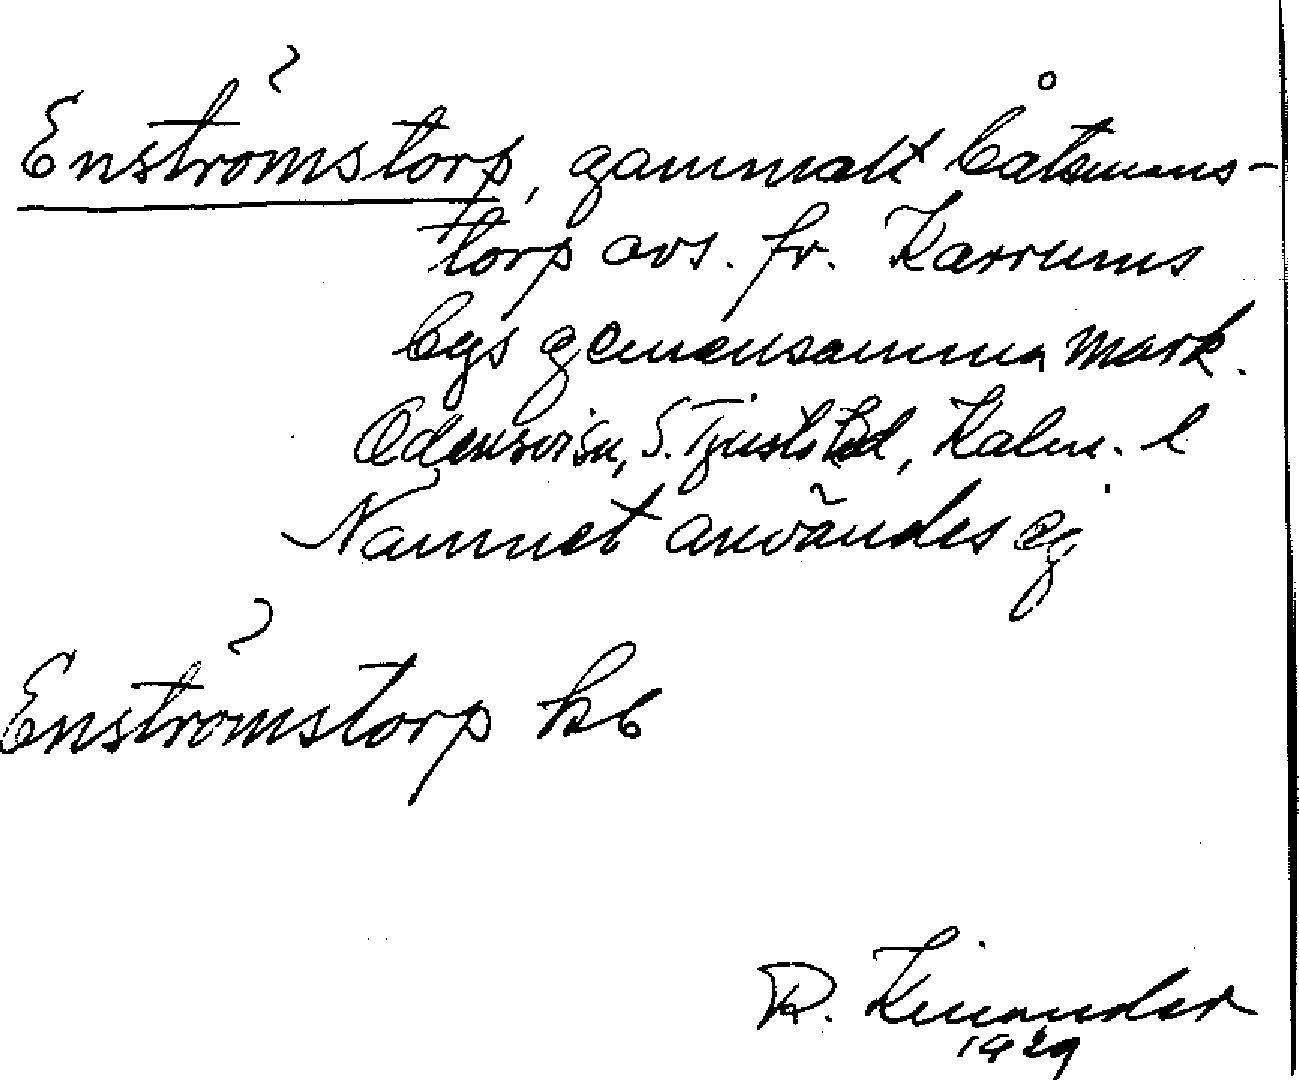 Enströmstorp, gammalt båtsmans-
torp avs. fr. Karrums
bys gemensamma mark.
Odensvi sn, S. Tjusts hd, Kalm. l
Namnet användes ej
Enströmstorp kb
R. Kinander
1929